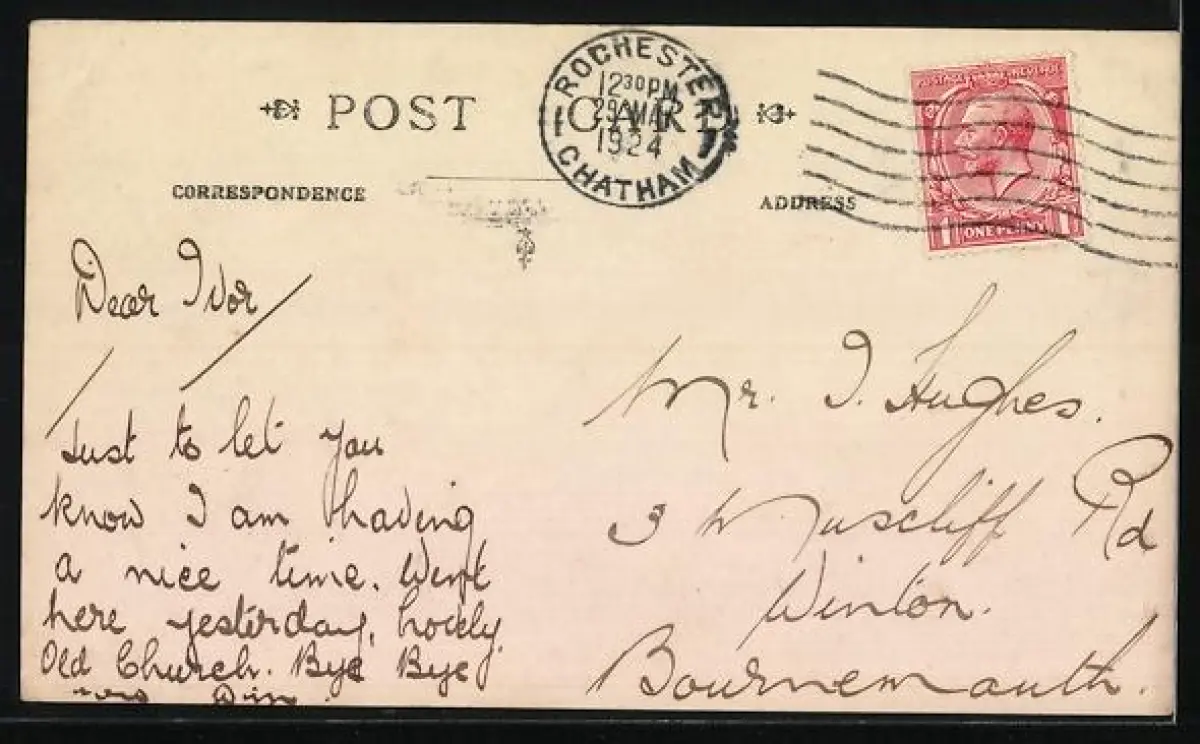 POST CARD
ROCHESTER
12 30 PM
29 MAR
1924
CHATHAM
POSTAGE REVENUE
1 ONE PENNY 1
CORRESPONDENCE
ADDRESS
Dear Ivor
Just to let you
know I am having
a nice time. Went
here yesterday, lovely
Old Church. Bye Bye
Mr. I. Hughes.
3 Muscliff Rd
Winton.
Bournemouth.